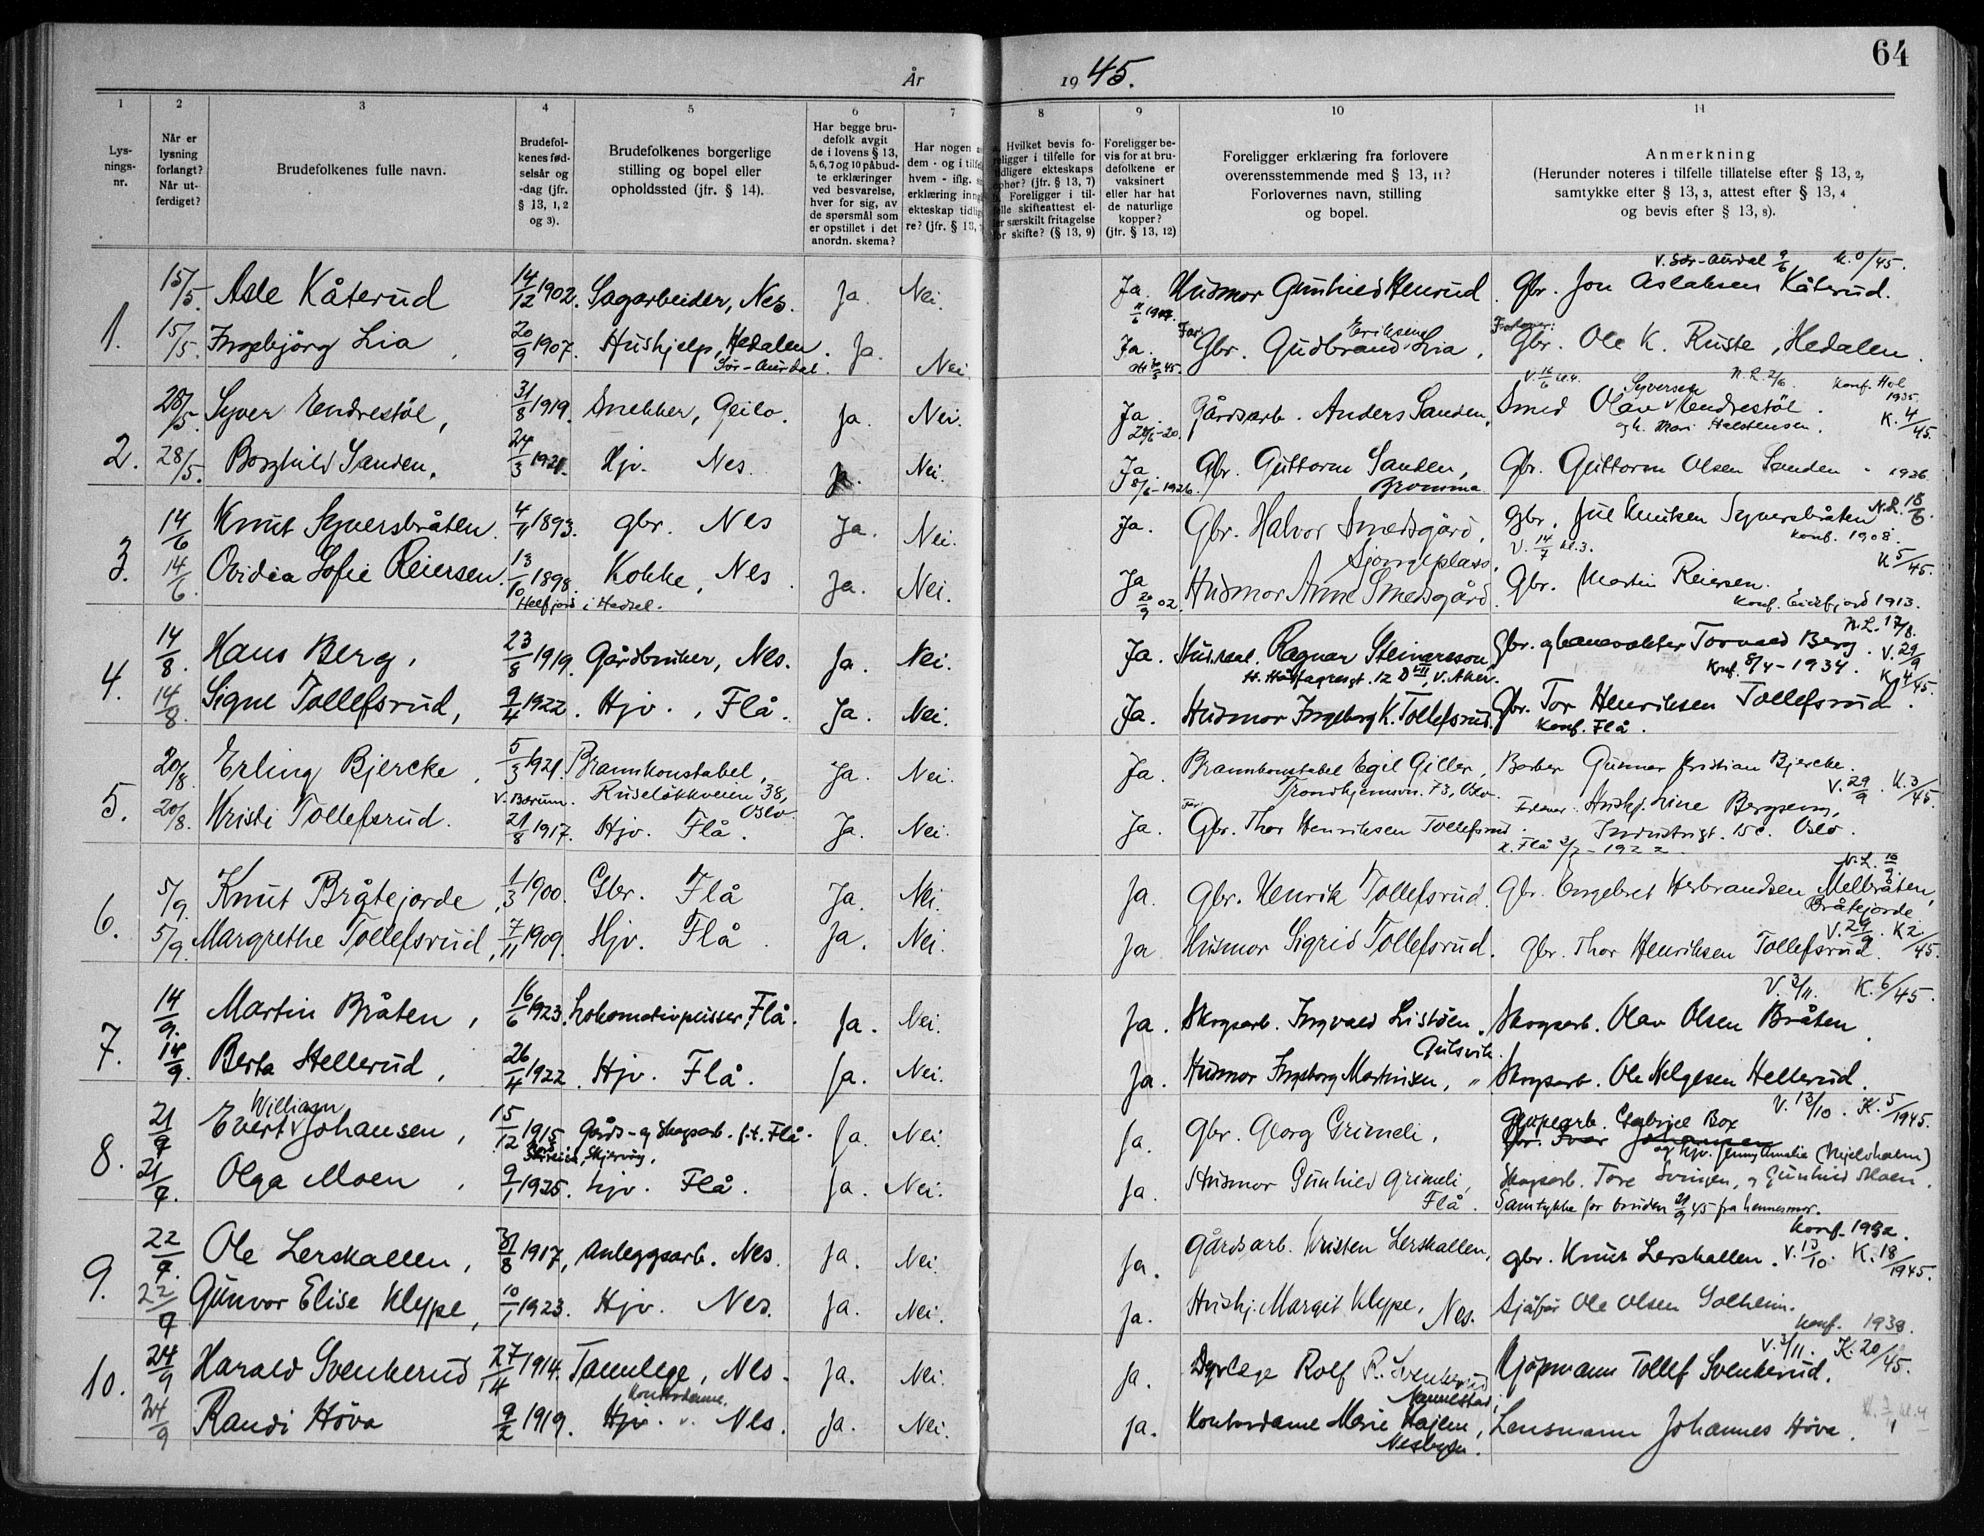 64
År 1945.
1 2 3 4 5 6 7 8 9 10 11
Lys-
nings-
nr.
Når er
lysning
forlangt?
Når ut-
ferdiget?
Brudefolkenes fulle navn.
Brudefol-
kenes fød-
selsår og
-dag (jfr.
§ 13, 1, 2
og 3).
Brudefolkenes borgerlige
stilling og bopel eller
opholdssted (jfr. § 14).
Har begge bru-
defolk avgit
de i lovens § 13,
5, 6, 7 og 10 påbud-
te erklæringer
ved besvarelse,
hver for sig, av
de spørsmål som
er opstillet i det
anordn. skema?
Har nogen
dem - og i
hvem - iflg.
erklæring
ekteskap
re? (jfr. § 13,
Hvilket bevis fo-
religger i tilfelle for
tidligere ekteskaps
ophør? (jfr. § 13, 7)
Foreligger i til-
felle skifteattest el-
ler særskilt fritagelse
for skifte? (§ 13, 9)
Foreligger be-
vis for at bru-
defolkene er
vaksinert
eller har hat
de naturlige
kopper?
(jfr. § 13, 12)
Foreligger erklæring fra forlovere
overensstemmende med § 13, 11?
Forlovernes navn, stilling
og bopel.
Anmerkning
(Herunder noteres i tilfelle tillatelse efter § 13, 2,
samtykke efter § 13, 3, attest efter § 13, 4
og bevis efter § 13, 8).
V. Sør-Aurdal 9/6 K. 0/45.
1. 15/5. Asle Kåterud 14/12 1902. Sagarbeider, Nes. Ja. Nei. Ja. Husmor Gunhild Henrud. Gbr. Jon Aslaksen Kåterud.
15/5. Ingebjörg Lia, 20/9 1907. Hushjelp, Hedalen. Ja. Nei. Ja. Far: Gbr. Gudbrand Eriksen Lia, Forlover: Gbr. Ole K. Ruste, Hedalen.
Sør-Aurdal.
N.L. 2/6. Konf. Hol 1935.
2. 28/5. Syver Endrestöl, 31/8 1919. Snekker, Geilo. Ja. Nei. Ja. Gårdsarb. Anders Sanden, Smed Olav Syversen Endrestöl. K. 4/45.
28/5. Borghild Sanden. 24/3 1921. Hjv. Nes. Ja. Nei. Ja. Gbr. Guttorm Sanden, Gbr. Guttorm Olsen Sanden 1936
Bromma
3. 14/6 Knut Syversbråten. 4/11 1893. gbr. Nes Ja. Nei. Ja. Gbr. Halvor Smedsgård, Gbr. Jul Knutsen Syversbråten N.L. 18/6.
Konf. 1908.
V. 14/7 kl. 3. K 5/45.
14/6 Ovidia Sofie Reiersen. 13/10 1898. Kokke, Nes. Ja. Nei. Ja 20/9 02. Husmor Anne Smedsgård. Gbr. Martin Reiersen.
i Hadsel. Konf. Eidsfjord 1913.
N.L. 17/8.
4. 14/8. Hans Berg, 23/8 1919. Gårdbruker, Nes. Ja. Nei. Ja. Ragnar Steinarsson, Gbr. og banevokter Torvald Berg. V. 29/9
V. Aker. Konf. 8/4-1934. K 4/45.
14/8. Signe Tollefsrud, 9/4 1922. Hjv., Flå. Ja. Nei. Ja. Husmor Ingeborg K. Tollefsrud. Gbr. Tor Henriksen Tollefsrud.
Konf. Flå.
5. 20/8. Erling Bjercke, 5/3 1921. Brannkonstabel, Ja. Nei. Ja. Brannkonstabel Egil Giller, Barber Gunnar Kristian Bjercke.
V. Bærum. Ruseløkkveien 38, Oslo Trondhjemsvn. 73, Oslo. V. 29/9. K. 3/45.
20/8. Kristi Tollefsrud. 21/8 1917. Hjv. Flå. Ja. Nei. Ja. Far: Gbr. Thor Henriksen Tollefsrud. Forlover: Hushj. Bergseng, Industrigt. 15c. Oslo.
K. Flå 2/7-1922
N.L. 10/9.
6. 5/9. Knut Bråtejorde, 1/3 1900. Gbr. Flå Ja. Nei. Ja. Gbr. Henrik Tollefsrud. Gbr. Engebret Herbrandsen Mellbråten, Bråtejorde
V. 29/9. K 2/45.
5/9. Margrethe Tollefsrud, 7/11 1909. Hjv. Flå. Ja. Nei. Ja Husmor Sigrid Tollefsrud. Gbr. Thor Henriksen Tollefsrud.
V. 3/11. K. 6/45.
7. 14/9. Martin Bråten, 16/6 1923. Lokomotivpusser, Flå. Ja. Nei. Ja. Skogsarb. Ingvald Listöen, Gulsvik. Skogsarb. Olav Olsen Bråten.
14/9. Berta Hellerud, 26/4 1922. Hjv. Flå. Ja. Nei. Ja. Husmor Ingeborg Martinsen, " Skogsarb. Ole Helgesen Hellerud.
V. 13/10. K. 5/1945.
8. 21/9 Evert William Johansen, 15/12 1915. Gårds- og Skogsarb. f.t. Flå. Ja. Nei. Ja. Gbr. Georg Grimeli, Gabriel Box
Skjervöy.
21/9. Olga Moen, 9/1 1925. hjv. Flå. Ja. Nei. Ja. Husmor Gunhild Grimeli, Flå. Skogsarb. Tore Svingen, og Gunhild Moen.
Samtykke for bruden 21/9 45 fra hennes mor.
Konf. 1932.
9. 22/9. Ole Lerskallen, 31/8 1917, Anleggsarb. Nes. Ja. Nei. Ja. Gårdsarb. Kristen Lerskallen, gbr. Knut Lerskallen. V. 13/10. K. 18/1945.
22/9 Gunvor Elise Klype, 10/1 1923. Hjv. Nes. Ja. Nei. Ja. Hushj. Margit Klype, Nes. Sjåför Ole Olsen Solheim.
Konf. 1938.
V. 3/11. K. 20/45.
10. 24/9 Harald Svenkerud, 27/4 1914. Tannlege, Nes. Ja. Nei. Ja. Dyrlege Rolf R. Svenkerud, Kjöpmann Tollef Svenkerud.
24/9 Randi Höva 9/2 1919. Hjv. Kontordame. Nes. Ja. Nei. Ja. Kontordame Marie Hajem, Nesbyen. Lensmann Johannes Höva.